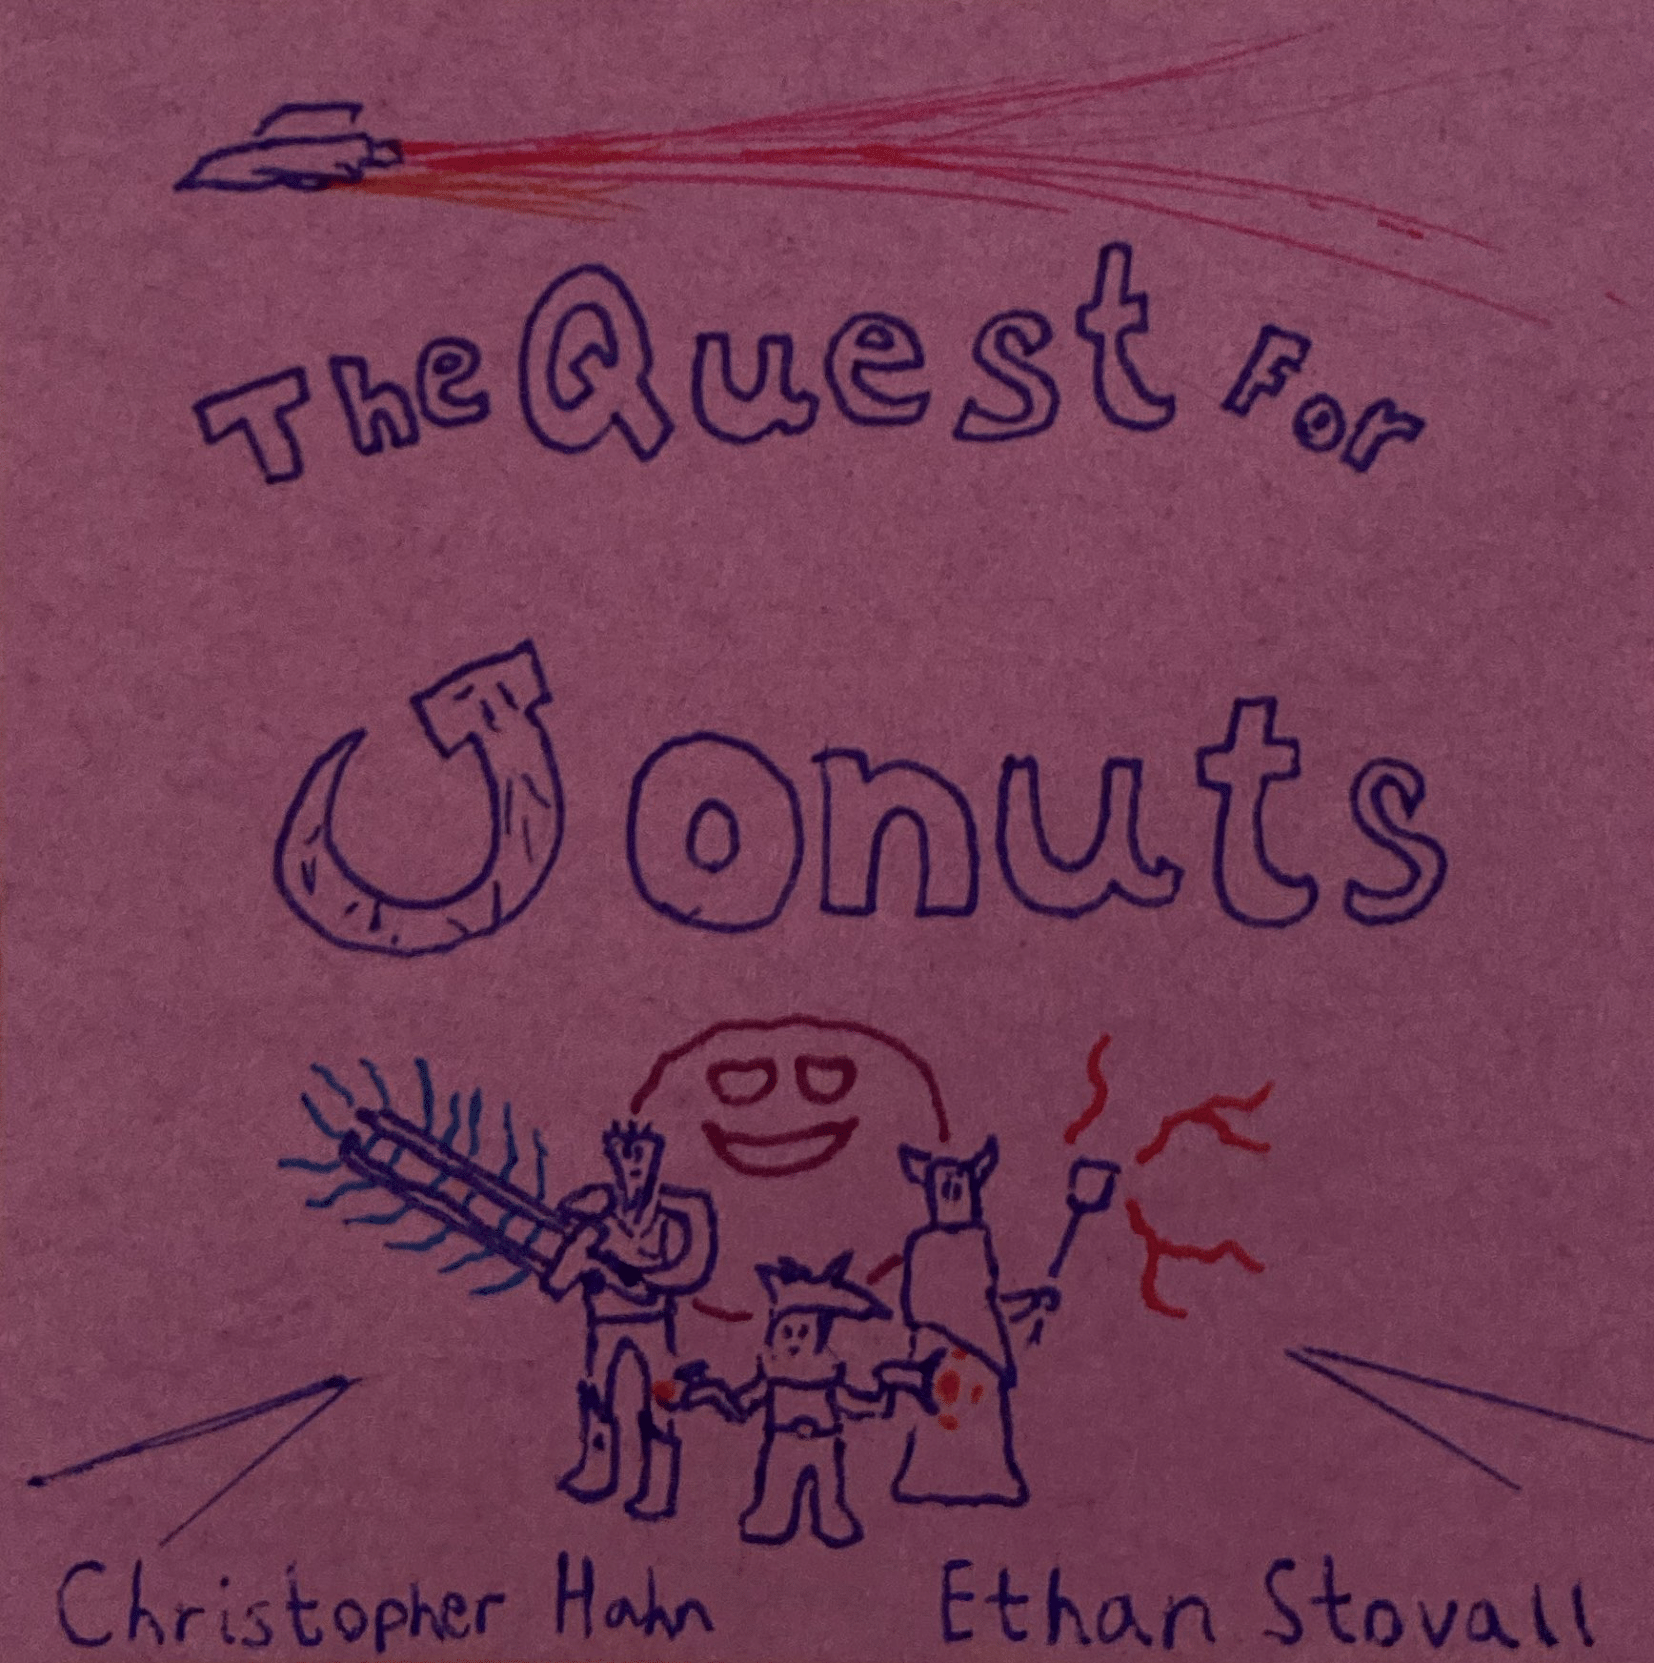 The Quest For
Jonuts
Christopher Hahn Ethan Stovall